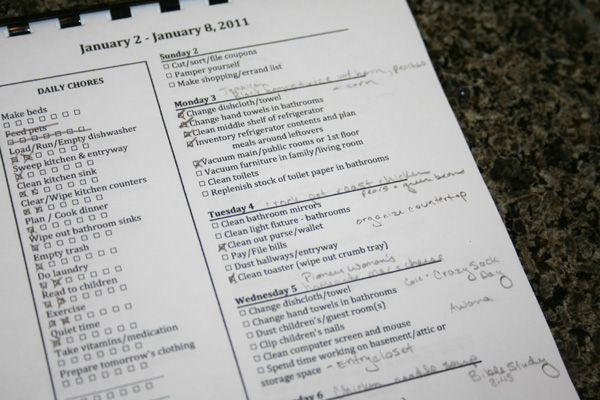 January 2 - January 8, 2011
DAILY CHORES
Make beds
Feed pets
Load/Run/Empty dishwasher
Sweep kitchen & entryway
Clean kitchen sink
Clear/Wipe kitchen counters
Plan / Cook dinner
Wipe out bathroom sinks
Empty trash
Do laundry
Read to children
Exercise
Quiet time
Take vitamins/medication
Prepare tomorrow's clothing
Sunday 2
Cut/sort/file coupons
Pamper yourself
Make shopping/errand list
Monday 3
corn
Change dishcloth/towel
Change hand towels in bathrooms
Clean middle shelf of refrigerator
Inventory refrigerator contents and plan
meals around leftovers
Vacuum main/public rooms or 1st floor
Vacuum furniture in family/living room
Clean toilets
Replenish stock of toilet paper in bathrooms
roast chicken
pears + green beans
Tuesday 4
Clean bathroom mirrors
Clean light fixture - bathrooms
organize countertop
Clean out purse/wallet
Pay/File bills
Dust hallways/entryway
Clean toaster (wipe out crumb tray)
Pioneer woman's
Wednesday 5
Crazy Sock
Day
Change dishcloth/towel
Change hand towels in bathrooms
Awana
Dust children's/guest room(s)
Clip children's nails
Clean computer screen and mouse
Spend time working on basement/attic or
storage space - entry closet
chicken noodle soup
Bible Study
8:45
6